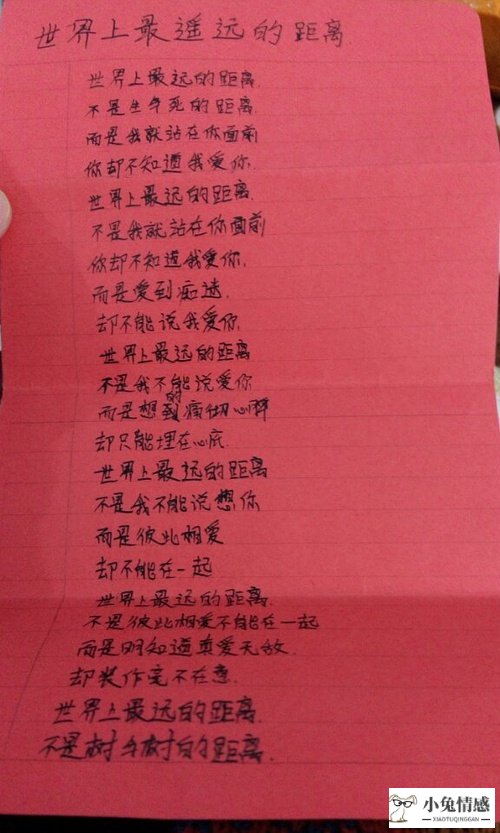 世界上最遥远的距离.
世界上最远的距离.
不是生与死的距离.
而是我就站在你面前
你却不知道我爱你.
世界上最远的距离.
不是我就站在你面前
你却不知道我爱你.
而是爱到痴迷.
却不能说我爱你.
世界上最远的距离
不是我不能说爱你
而是想的到痛彻心脾
却只能埋在心底.
世界上最远的距离
不是我不能说想你
而是彼此相爱
却不能在一起
世界上最远的距离.
不是彼此相爱不能在一起
而是明知道真爱无敌
却装作毫不在意.
世界上最远的距离.
不是树与树的距离.
小兔情感
XIAOTUQINGGAN